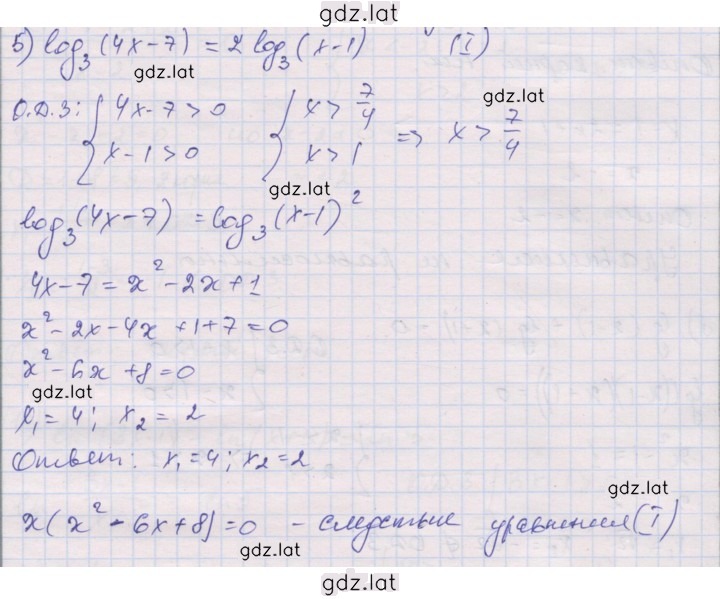 gdz.lat
5) log₃(4x-7) = 2 log₃(x-1) (I)
gdz.lat
gdz.lat
О.Д.З: { 4x-7>0 { x> 7/4 => x> 7/4
x-1>0 x>1
gdz.lat
log₃(4x-7) = log₃(x-1)²
4x-7 = x²-2x+1
x²-2x-4x+1+7=0
x²-6x+8=0
gdz.lat
x₁=4; x₂=2
Ответ: x₁=4; x₂=2
gdz.lat
x(x²-6x+8)=0 - следствие уравнения (I)
gdz.lat
gdz.lat